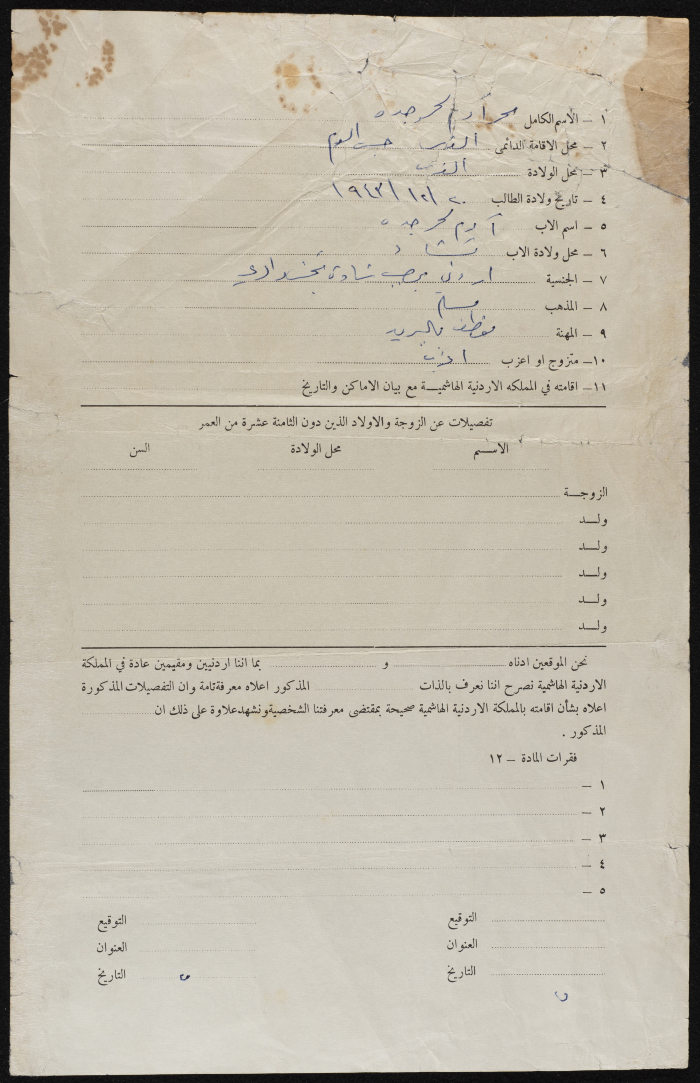 ١ – الاسم الكامل
٢ – محل الاقامة الدائمى القدس
٣ – محل الولادة القدس
٤ – تاريخ ولادة الطالب ٢٠ /١٢/ ١٩٤٣
٥ – اسم الاب آدم
٦ – محل ولادة الاب تشاد
٧ – الجنسية اردني
٨ – المذهب مسلم
٩ – المهنة موظف بالبريد
١٠– متزوج او اعزب اعزب
١١– اقامته في المملكه الاردنية الهاشميــة مع بيان الاماكن والتاريخ
تفصيلات عن الزوجة والاولاد الذين دون الثامنة عشرة من العمر
الاســم محل الولادة السن
الزوجــة
ولــد
ولــد
ولــد
ولــد
ولــد
نحن الموقعين ادناه و بما اننا اردنيين ومقيمين عادة في المملكة
الاردنية الهاشمية نصرح اننا نعرف بالذات المذكور اعلاه معرفة تامة وان التفصيلات المذكورة
اعلاه بشأن اقامته بالمملكة الاردنية الهاشمية صحيحة بمقتضى معرفتنا الشخصية ونشهد علاوة على ذلك ان
المذكور .
فقرات المادة – ١٢
١ –
٢ –
٣ –
٤ –
٥ –
التوقيع التوقيع
العنوان العنوان
التاريخ التاريخ